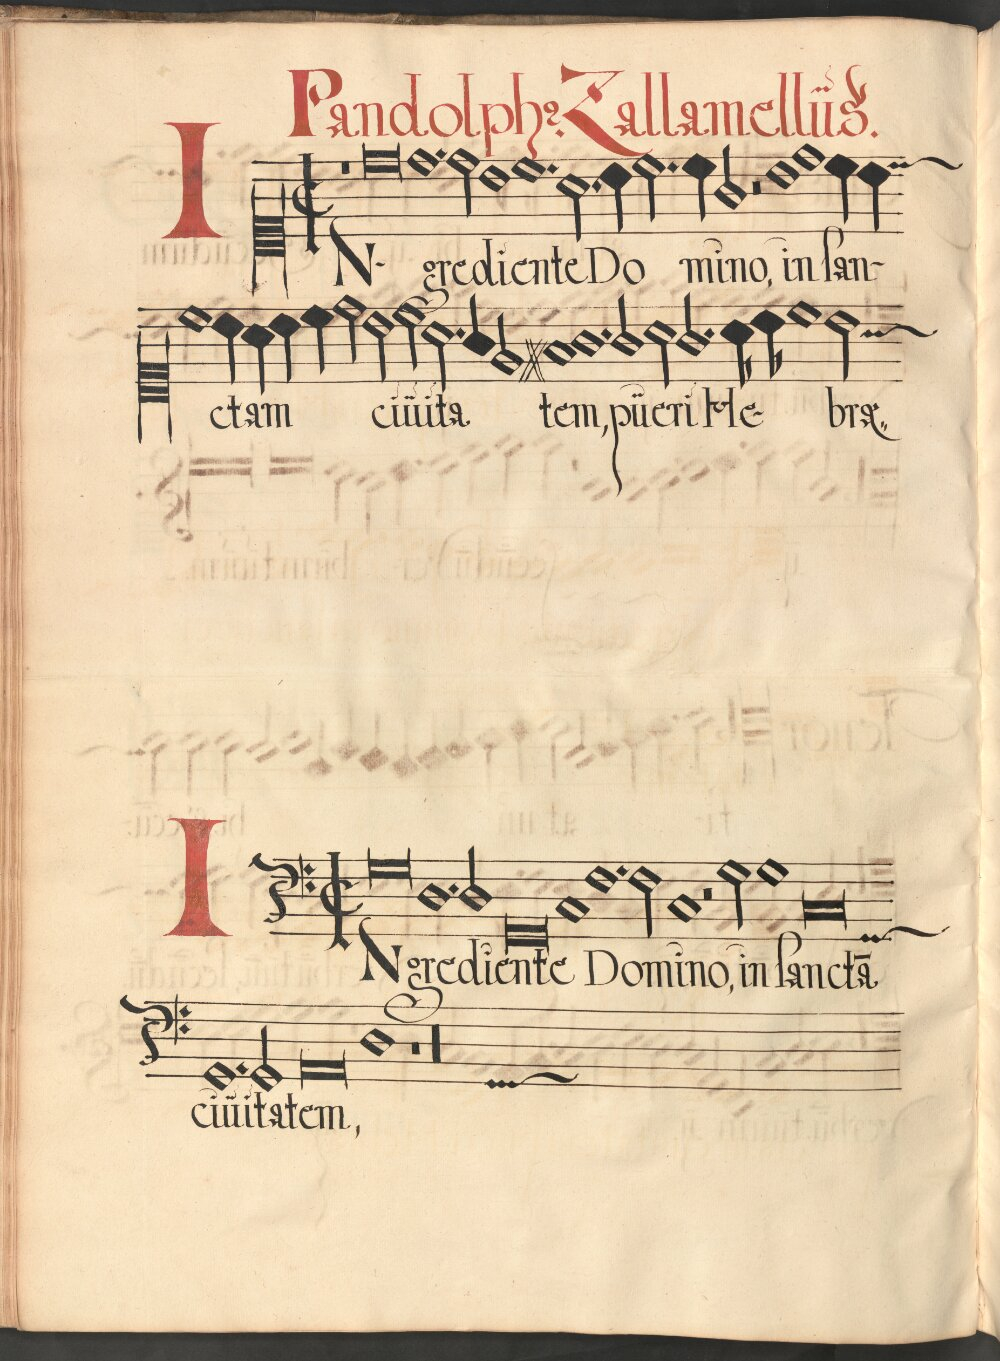 Pandolph9. Zallamellüs.
IN- grediente Do mino, in san-
ctam ciüita tem, püeri He- bræ-
INgrediente Domino, in sanctā
ciüitatem,